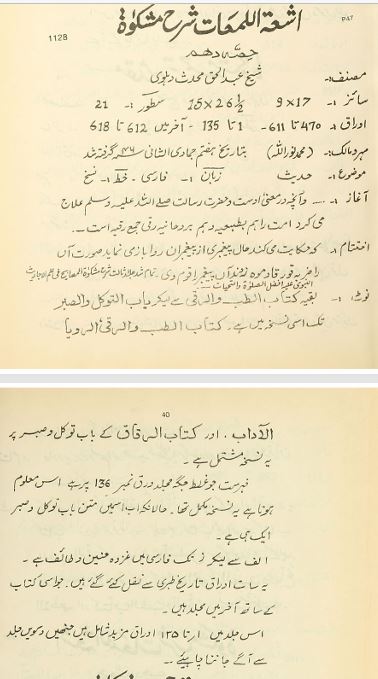 اشعۃ اللمعات شرح مشکوٰۃ
P47
1128
حصّہ دھم
مصنف:- شیخ عبدالحق محدث دہلوی
سائز :- 9x17 15x26½ سطور :- 21
اوراق :- 470 تا 611 - 1 تا 135 - آخر میں 612 تا 618
مہر و مالک:- (محمد نور اللہ) بتاریخ ہفتم جمادی الثانی گرفتہ شد
موضوع:- حدیث زبان :- فارسی - خط :- نسخ
آغاز :- ... و آنچہ در معنی اوست و حضرت رسالت صلے اللہ علیہ وسلم علاج
می کرد امت را ہم بطبیعیہ و ہم بروحانیہ و رقی جمع رقیہ است -
اختتام :- کہ حکایت می کند حال پیغمبری از پیغمبران رو ا بازی نماید صورت آں
را
نوٹ :- بقیہ کتاب الطب والرقی سے لیکر باب التوکل والصبر
تک اسی نسخہ میں ہے - کتاب الطب والرقی الرویا
40
الآداب ، اور کتاب الرقاق کے باب توکل و صبر پر
یہ نسخہ مشتمل ہے -
فہرست جو غلط جگہ مجلد ورق نمبر 136 پر ہے اس معلوم
ہوتا ہے یہ نسخہ مکمل تھا - حالانکہ اب اسمیں متن باب توکل و صبر
ایک ہی ہے -
الف سے لیکر ز تک فارسی میں غزوہ حنین و طائف ہے -
یہ سات اوراق تاریخ طبری سے نقل کئے گئے ہیں - جو اسی کتاب
کے ساتھ آخر میں مجلد ہیں -
اس جلد میں ۱ تا ۱۳۵ اوراق مزید شامل ہیں جنھیں دسویں جلد
سے آگے جاننا چاہیئے -